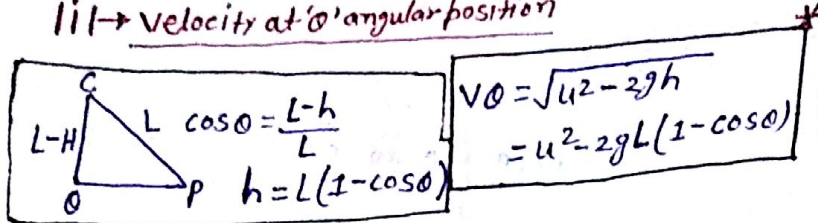 iii→ velocity at 'θ' angular position
C
L-H
L
Q
P
cosθ = L-h / L
h = L(1-cosθ)
Vθ = √u²-2gh
= u²-2gL(1-cosθ)